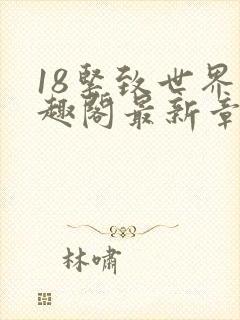 18紧致世界
趣阁最新章
林啸